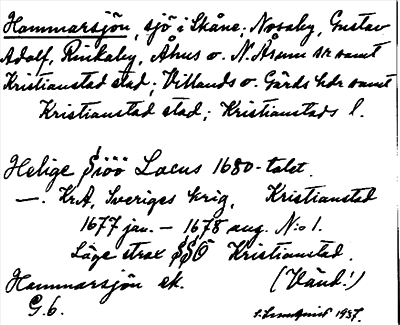 Hammarsjön, sjö i Skåne; Nosaby, Gustav
Adolf, Rinkaby, Åhus o. N. Åsum snr samt
Kristianstad stad; Villands o. Gärds hdr samt
Kristianstad stad; Kristianstads l.
Helige Siöö Lacus 1680-talet.
—. KrA, Sveriges krig, Kristianstad
1677 jan. – 1678 aug. N:o 1.
Läge strax SSÖ Kristianstad.
Hammarsjön ek. (Vänd!)
G.6. 1937.